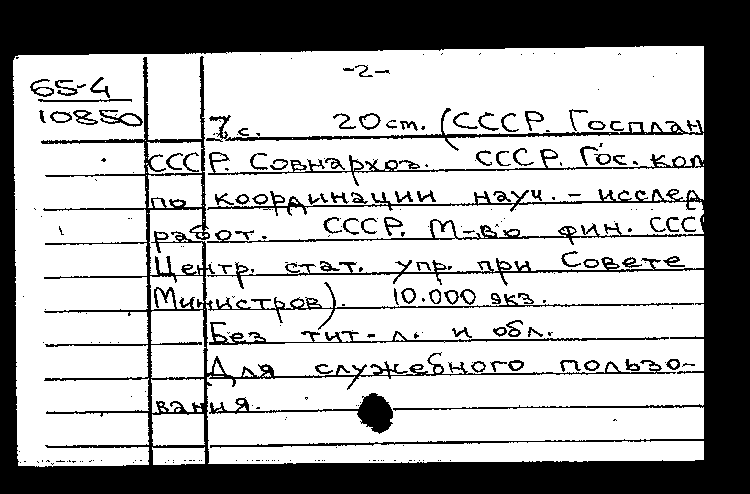 -2-
65-4
10850
7 с. 20 ст. (СССР. Госплан
СССР. Совнархоз. СССР. Гос. ком
по координации науч.-исслед
работ. СССР. М-во фин. СССР
Центр. стат. упр. при Совете
Министров). 10.000 экз.
Без тит-л. и обл.
Для служебного пользо-
вания.